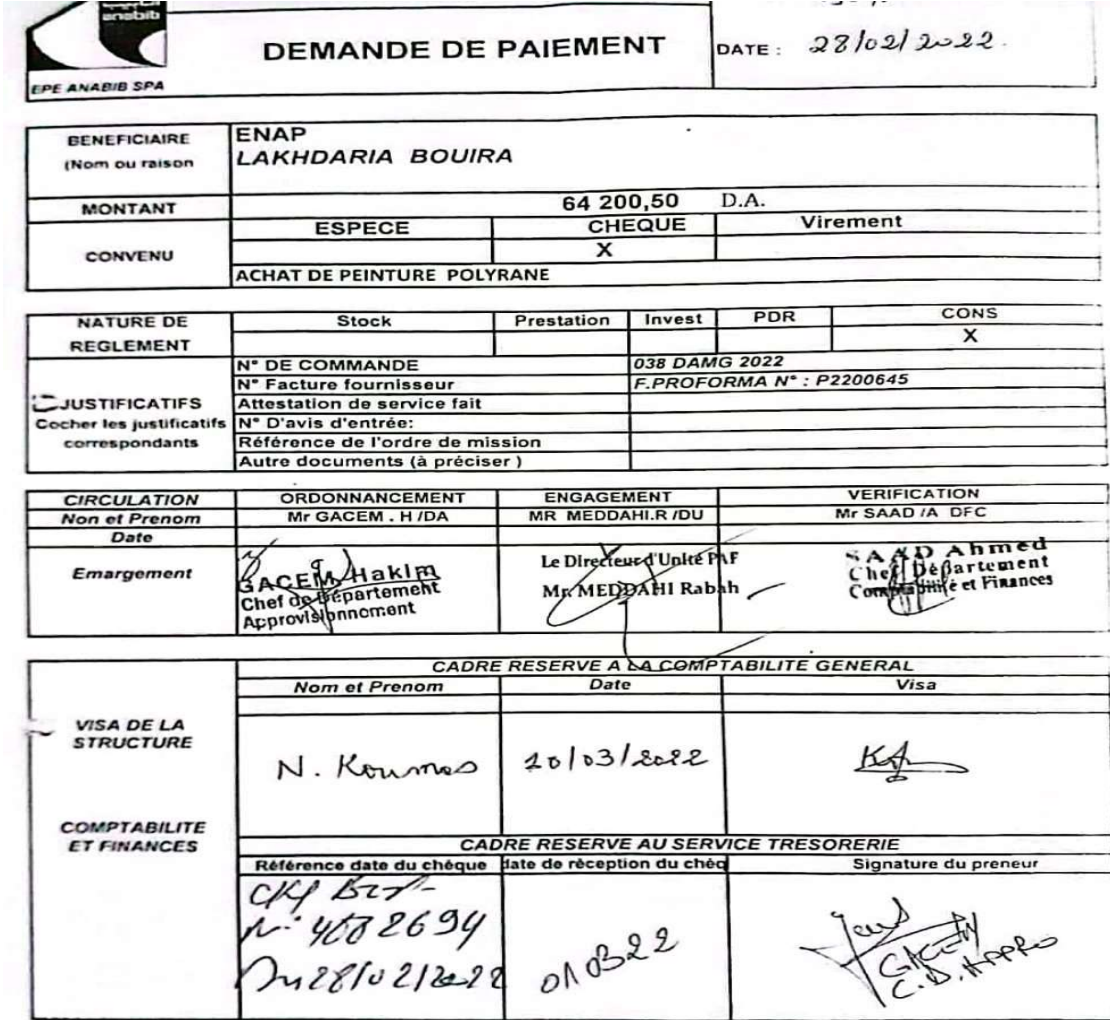 anabib
EPE ANABIB SPA
DEMANDE DE PAIEMENT
DATE : 28/02/2022.
BENEFICIAIRE
(Nom ou raison
ENAP
LAKHDARIA BOUIRA
MONTANT
64 200,50 D.A.
CONVENU
ESPECE CHEQUE Virement
X
ACHAT DE PEINTURE POLYRANE
NATURE DE
REGLEMENT
Stock Prestation Invest PDR CONS
X
JUSTIFICATIFS
Cocher les justificatifs
correspondants
N° DE COMMANDE 038 DAMG 2022
N° Facture fournisseur F.PROFORMA N° : P2200645
Attestation de service fait
N° D'avis d'entrée:
Référence de l'ordre de mission
Autre documents (à préciser )
CIRCULATION ORDONNANCEMENT ENGAGEMENT VERIFICATION
Non et Prenom Mr GACEM . H /DA MR MEDDAHI.R /DU Mr SAAD /A DFC
Date
Emargement
GACEM Hakim
Chef de Département
Approvisionnement
Le Directeur d'Unité PAF
Mr. MEDDAHI Rabah
SAAD Ahmed
Chef Département
Comptabilité et Finances
VISA DE LA
STRUCTURE
COMPTABILITE
ET FINANCES
CADRE RESERVE A LA COMPTABILITE GENERAL
Nom et Prenom Date Visa
N. Koumas
CADRE RESERVE AU SERVICE TRESORERIE
Référence date du chéque date de rèception du chéq Signature du preneur
Du 28/02/2022
010322
GACEM
C.D.APPRO